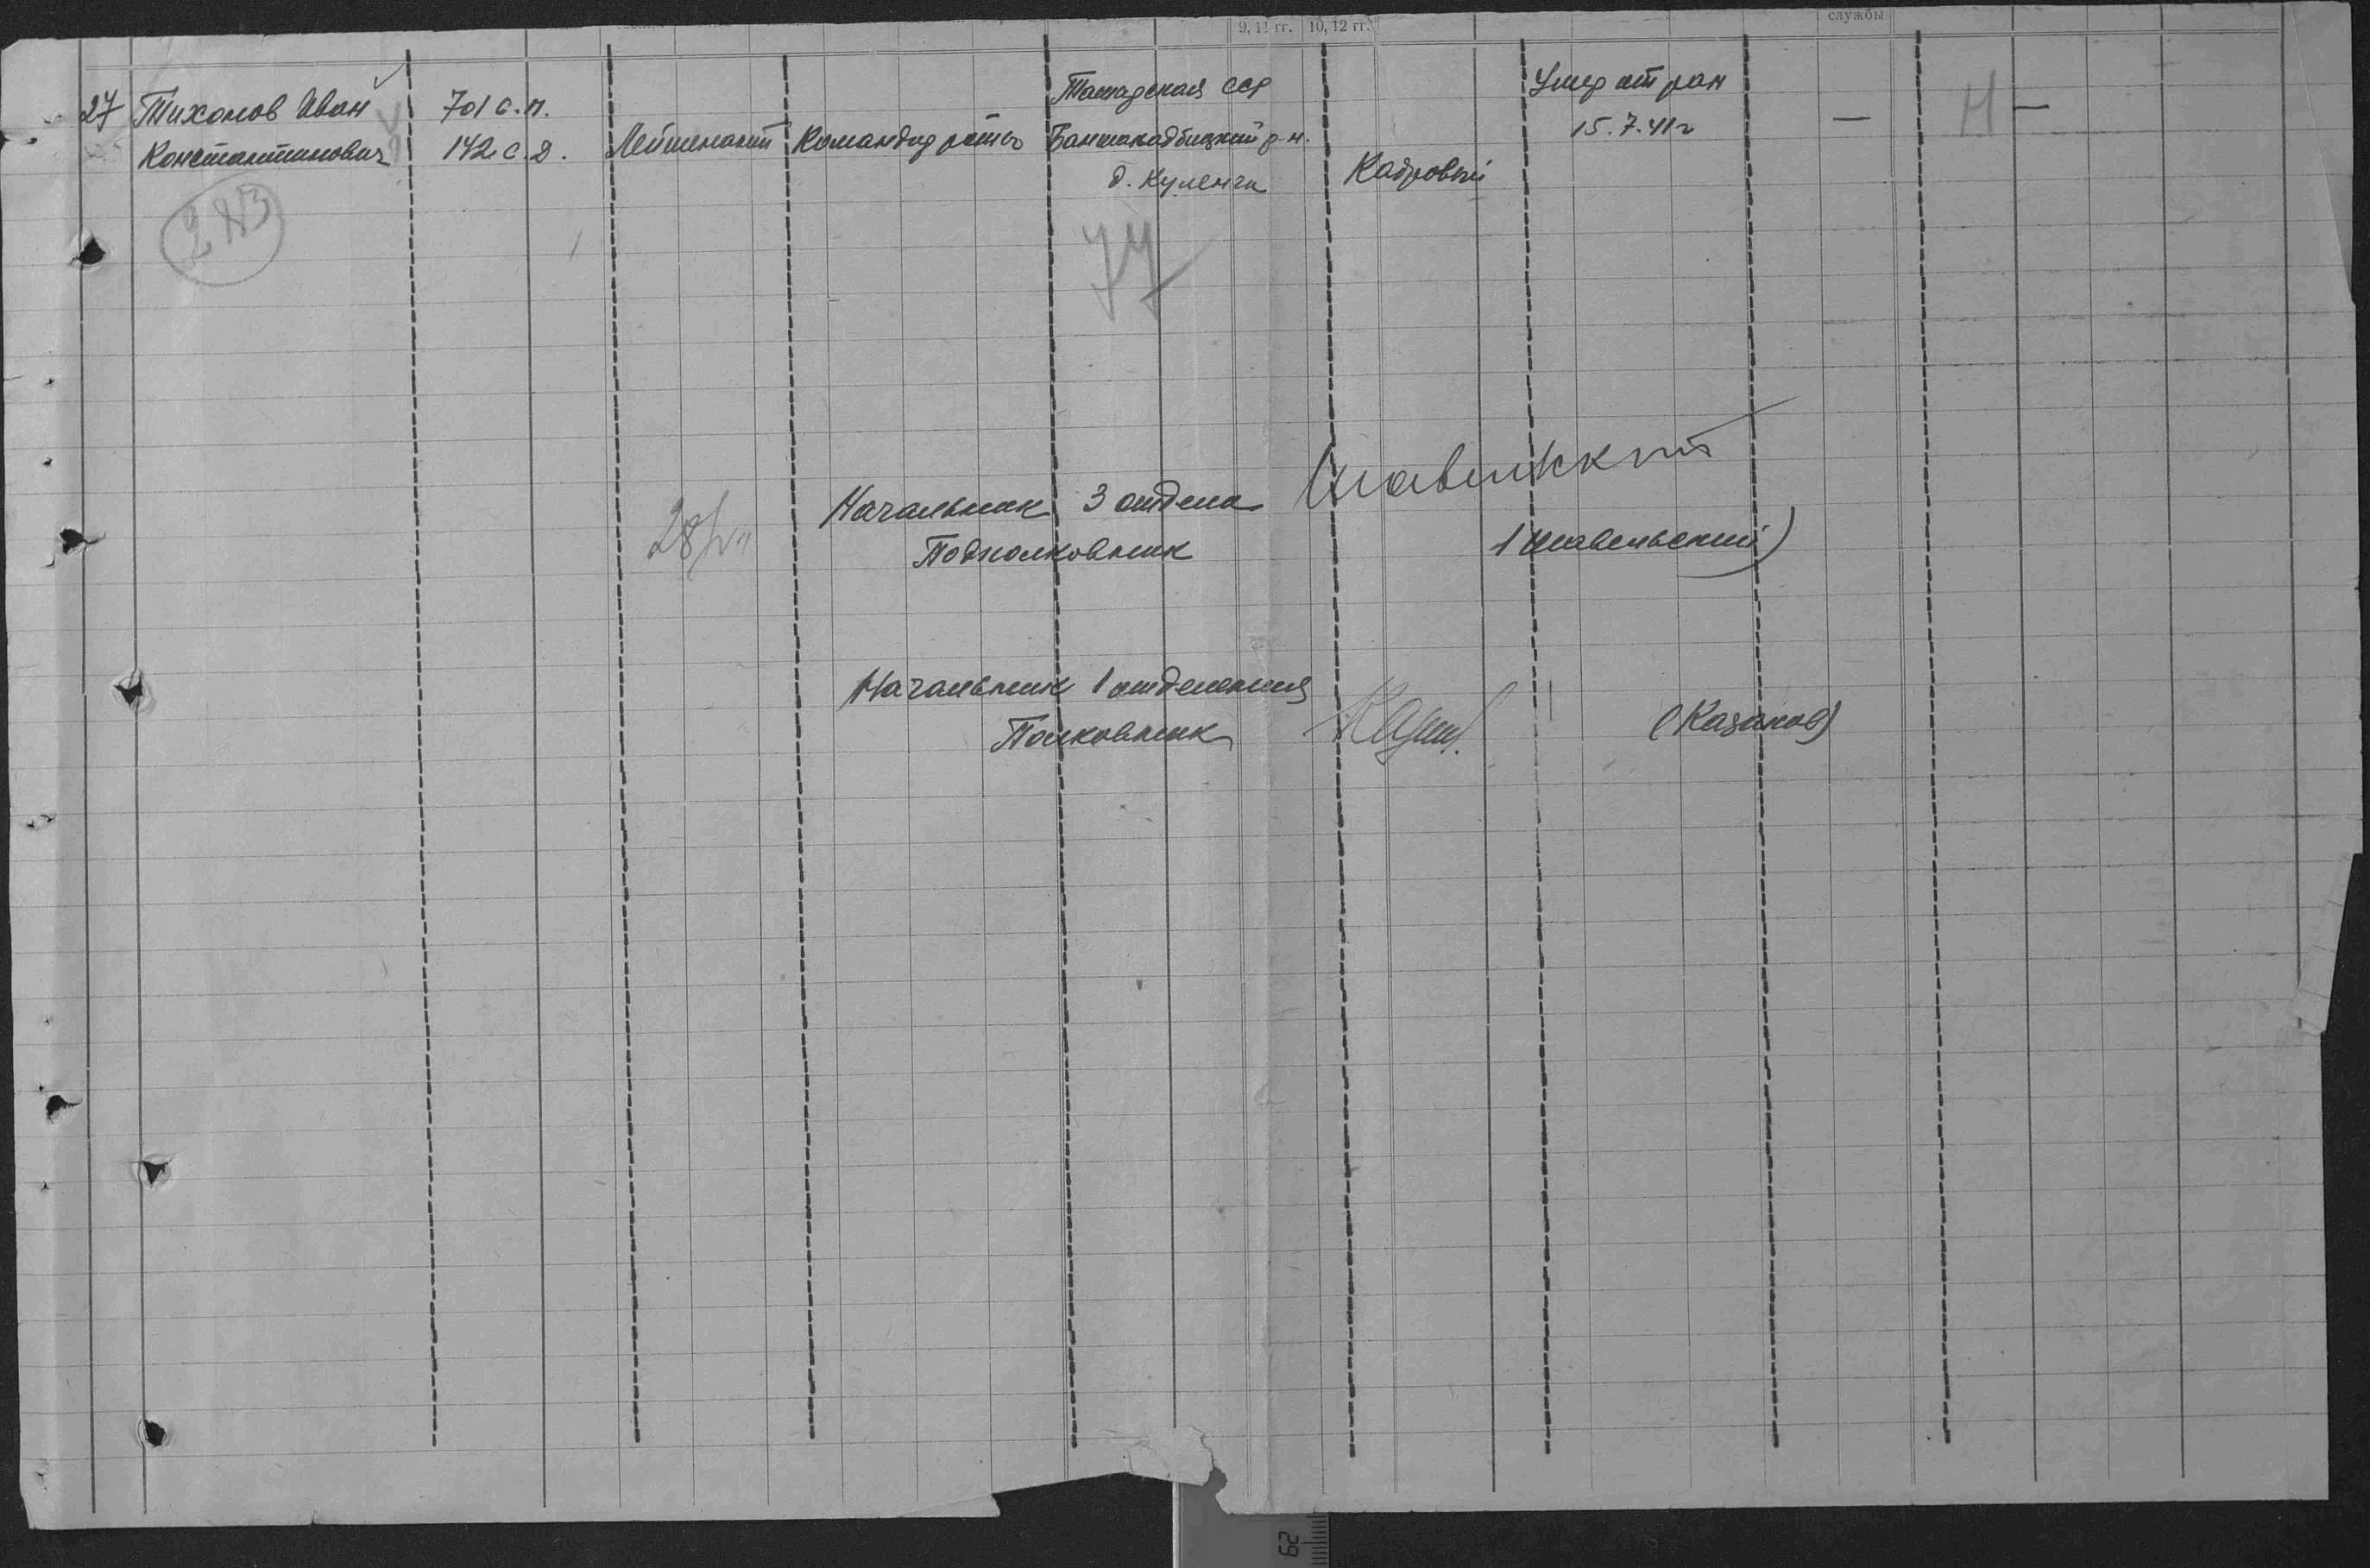 9, 11 гг. 10, 12 гг.
службы
27 Тихонов Иван
Константинович
701 с.п.
142 с.д.
Лейтенант
Командир роты
Татарская ССР
р-н.
д. Куленга
Кадровый
Умер от ран
15.7.41г
—
Н —
77
Начальник 3 отдела
Подполковник
(Шавельский)
Начальник 1 отделения
Полковник
(Казаков)
62